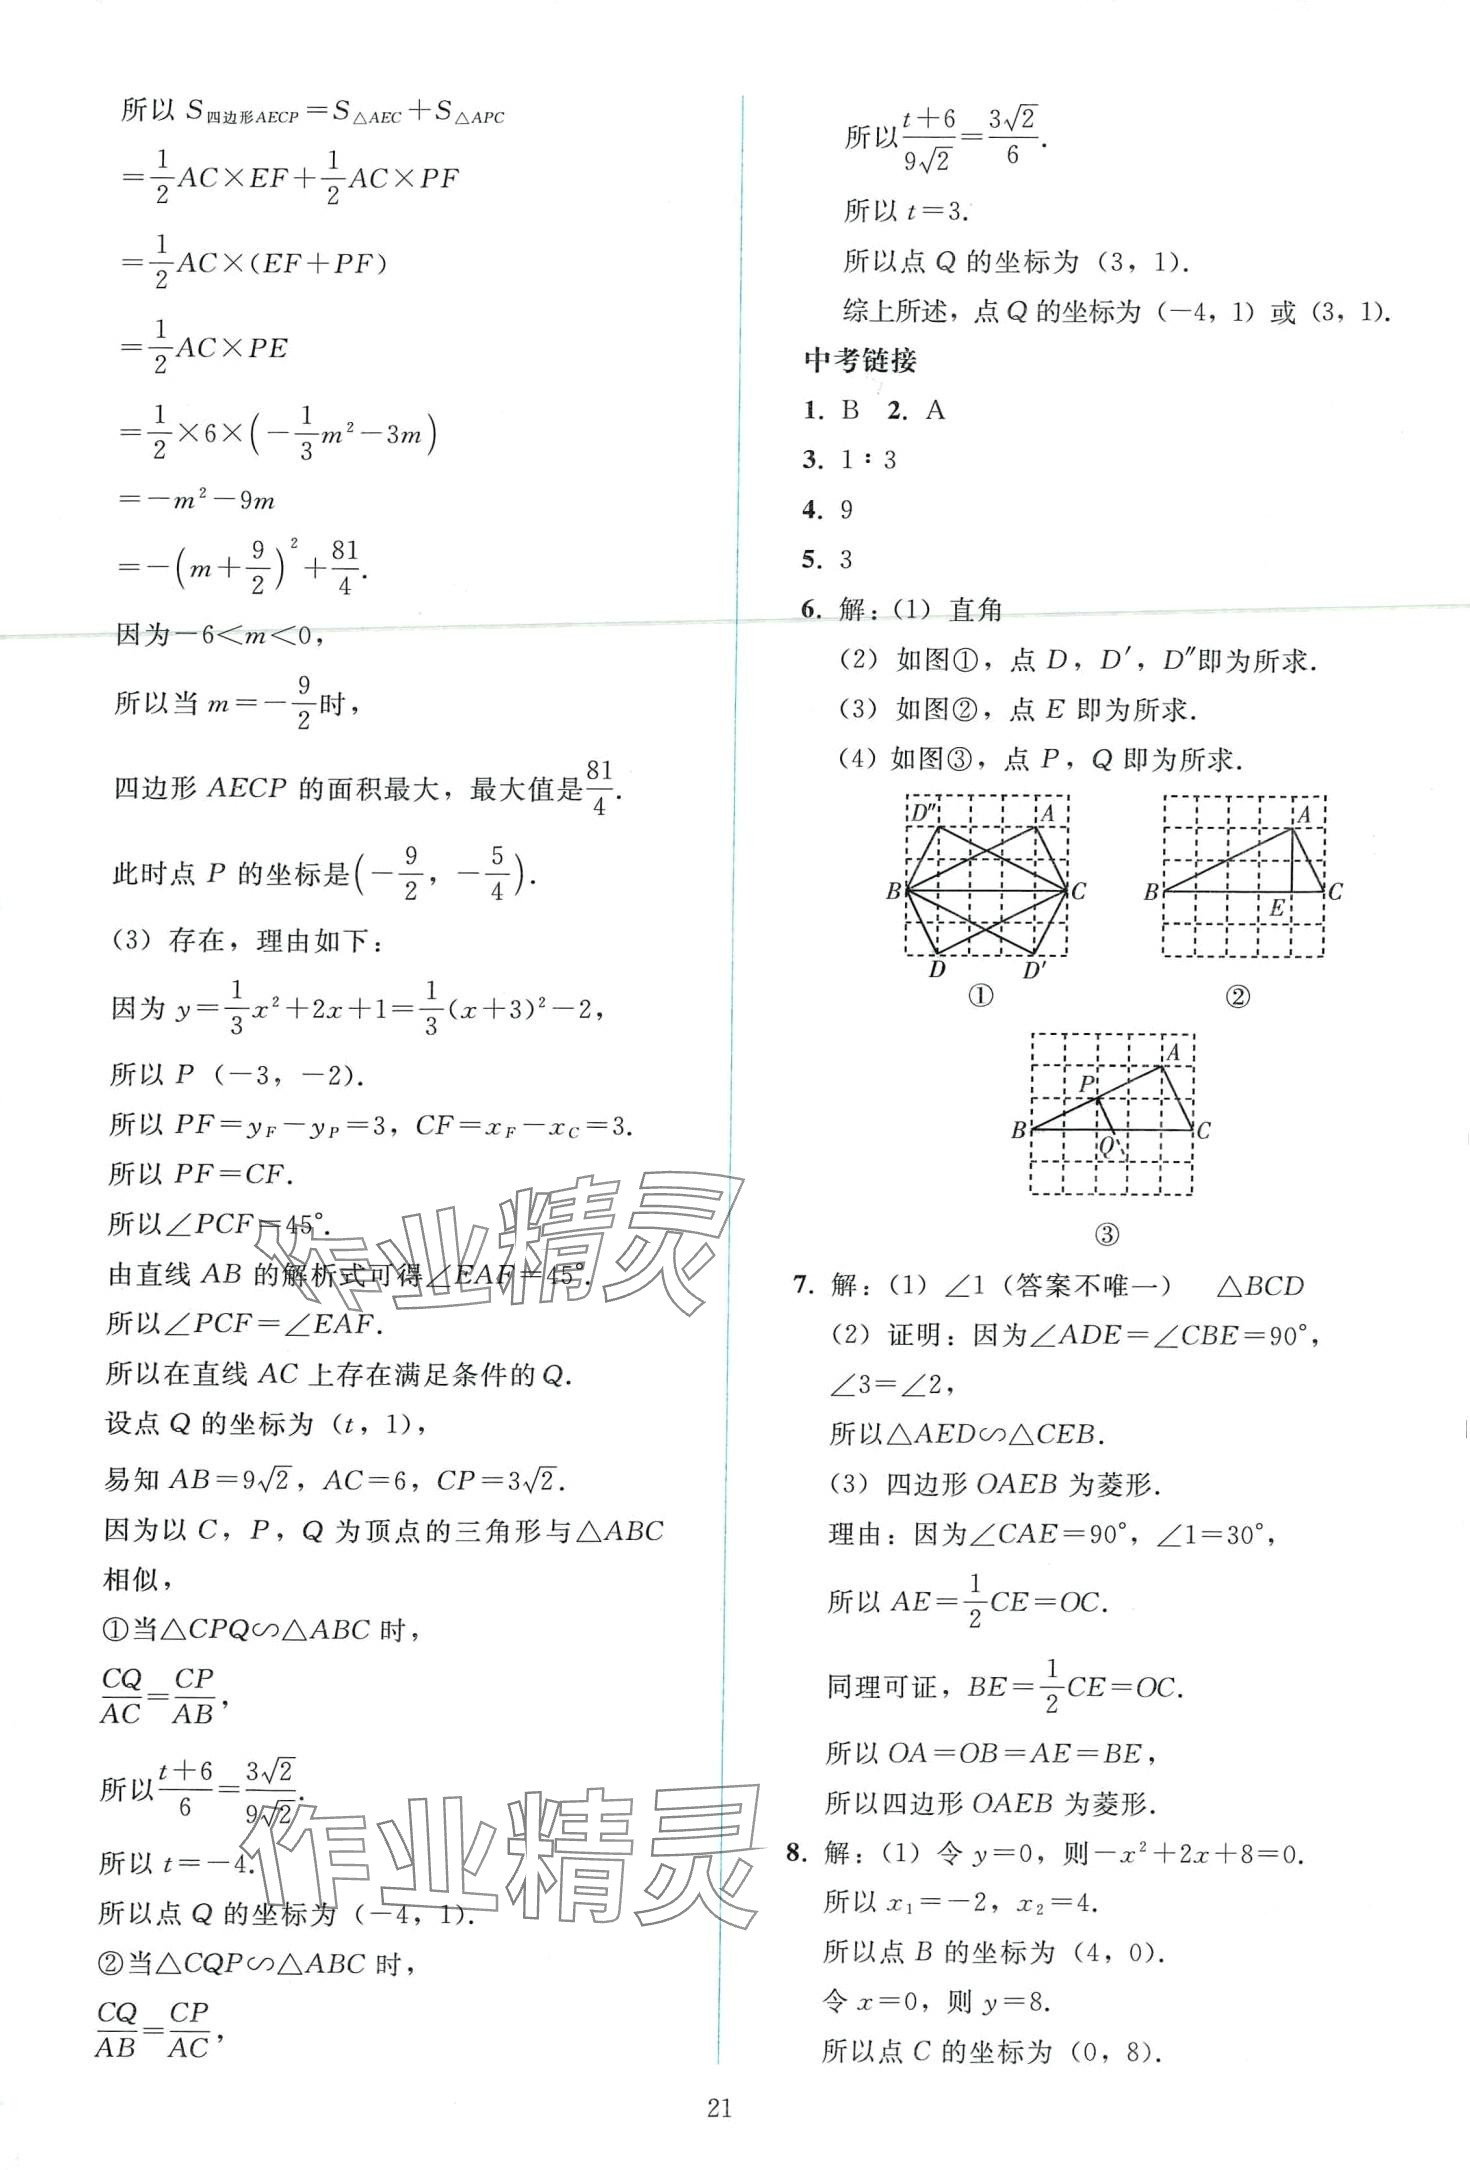 所以 S四边形AECP=S△AEC+S△APC
=1/2 AC×EF+1/2 AC×PF
=1/2 AC×(EF+PF)
=1/2 AC×PE
=1/2×6×(-1/3 m²-3m)
=-m²-9m
=-(m+9/2)²+81/4.
因为-6<m<0,
所以当 m=-9/2时,
四边形 AECP 的面积最大，最大值是81/4.
此时点 P 的坐标是(-9/2, -5/4).
(3) 存在，理由如下:
因为 y=1/3 x²+2x+1=1/3(x+3)²-2,
所以 P (-3, -2).
所以 PF=yF-yP=3, CF=xF-xC=3.
所以 PF=CF.
所以∠PCF=45°.
由直线 AB 的解析式可得∠EAF=45°.
所以∠PCF=∠EAF.
所以在直线 AC 上存在满足条件的 Q.
设点 Q 的坐标为 (t, 1),
易知 AB=9√2, AC=6, CP=3√2.
因为以 C, P, Q 为顶点的三角形与△ABC
相似,
①当△CPQ∽△ABC 时,
CQ/AC=CP/AB,
所以(t+6)/6=3√2/9√2.
所以 t=-4.
所以点 Q 的坐标为 (-4, 1).
②当△CQP∽△ABC 时,
CQ/AB=CP/AC,
所以(t+6)/9√2=3√2/6.
所以 t=3.
所以点 Q 的坐标为 (3, 1).
综上所述，点 Q 的坐标为 (-4, 1) 或 (3, 1).
中考链接
1. B 2. A
3. 1∶3
4. 9
5. 3
6. 解: (1) 直角
(2) 如图①，点 D, D′, D″即为所求.
(3) 如图②，点 E 即为所求.
(4) 如图③，点 P, Q 即为所求.
D″ A
B C
D D′
①
A
B E C
②
A
P
B Q C
③
7. 解: (1) ∠1 (答案不唯一) △BCD
(2) 证明: 因为∠ADE=∠CBE=90°,
∠3=∠2,
所以△AED∽△CEB.
(3) 四边形 OAEB 为菱形.
理由: 因为∠CAE=90°, ∠1=30°,
所以 AE=1/2 CE=OC.
同理可证，BE=1/2 CE=OC.
所以 OA=OB=AE=BE,
所以四边形 OAEB 为菱形.
8. 解: (1) 令 y=0，则-x²+2x+8=0.
所以 x₁=-2, x₂=4.
所以点 B 的坐标为 (4, 0).
令 x=0，则 y=8.
所以点 C 的坐标为 (0, 8).
21
作业精灵
作业精灵